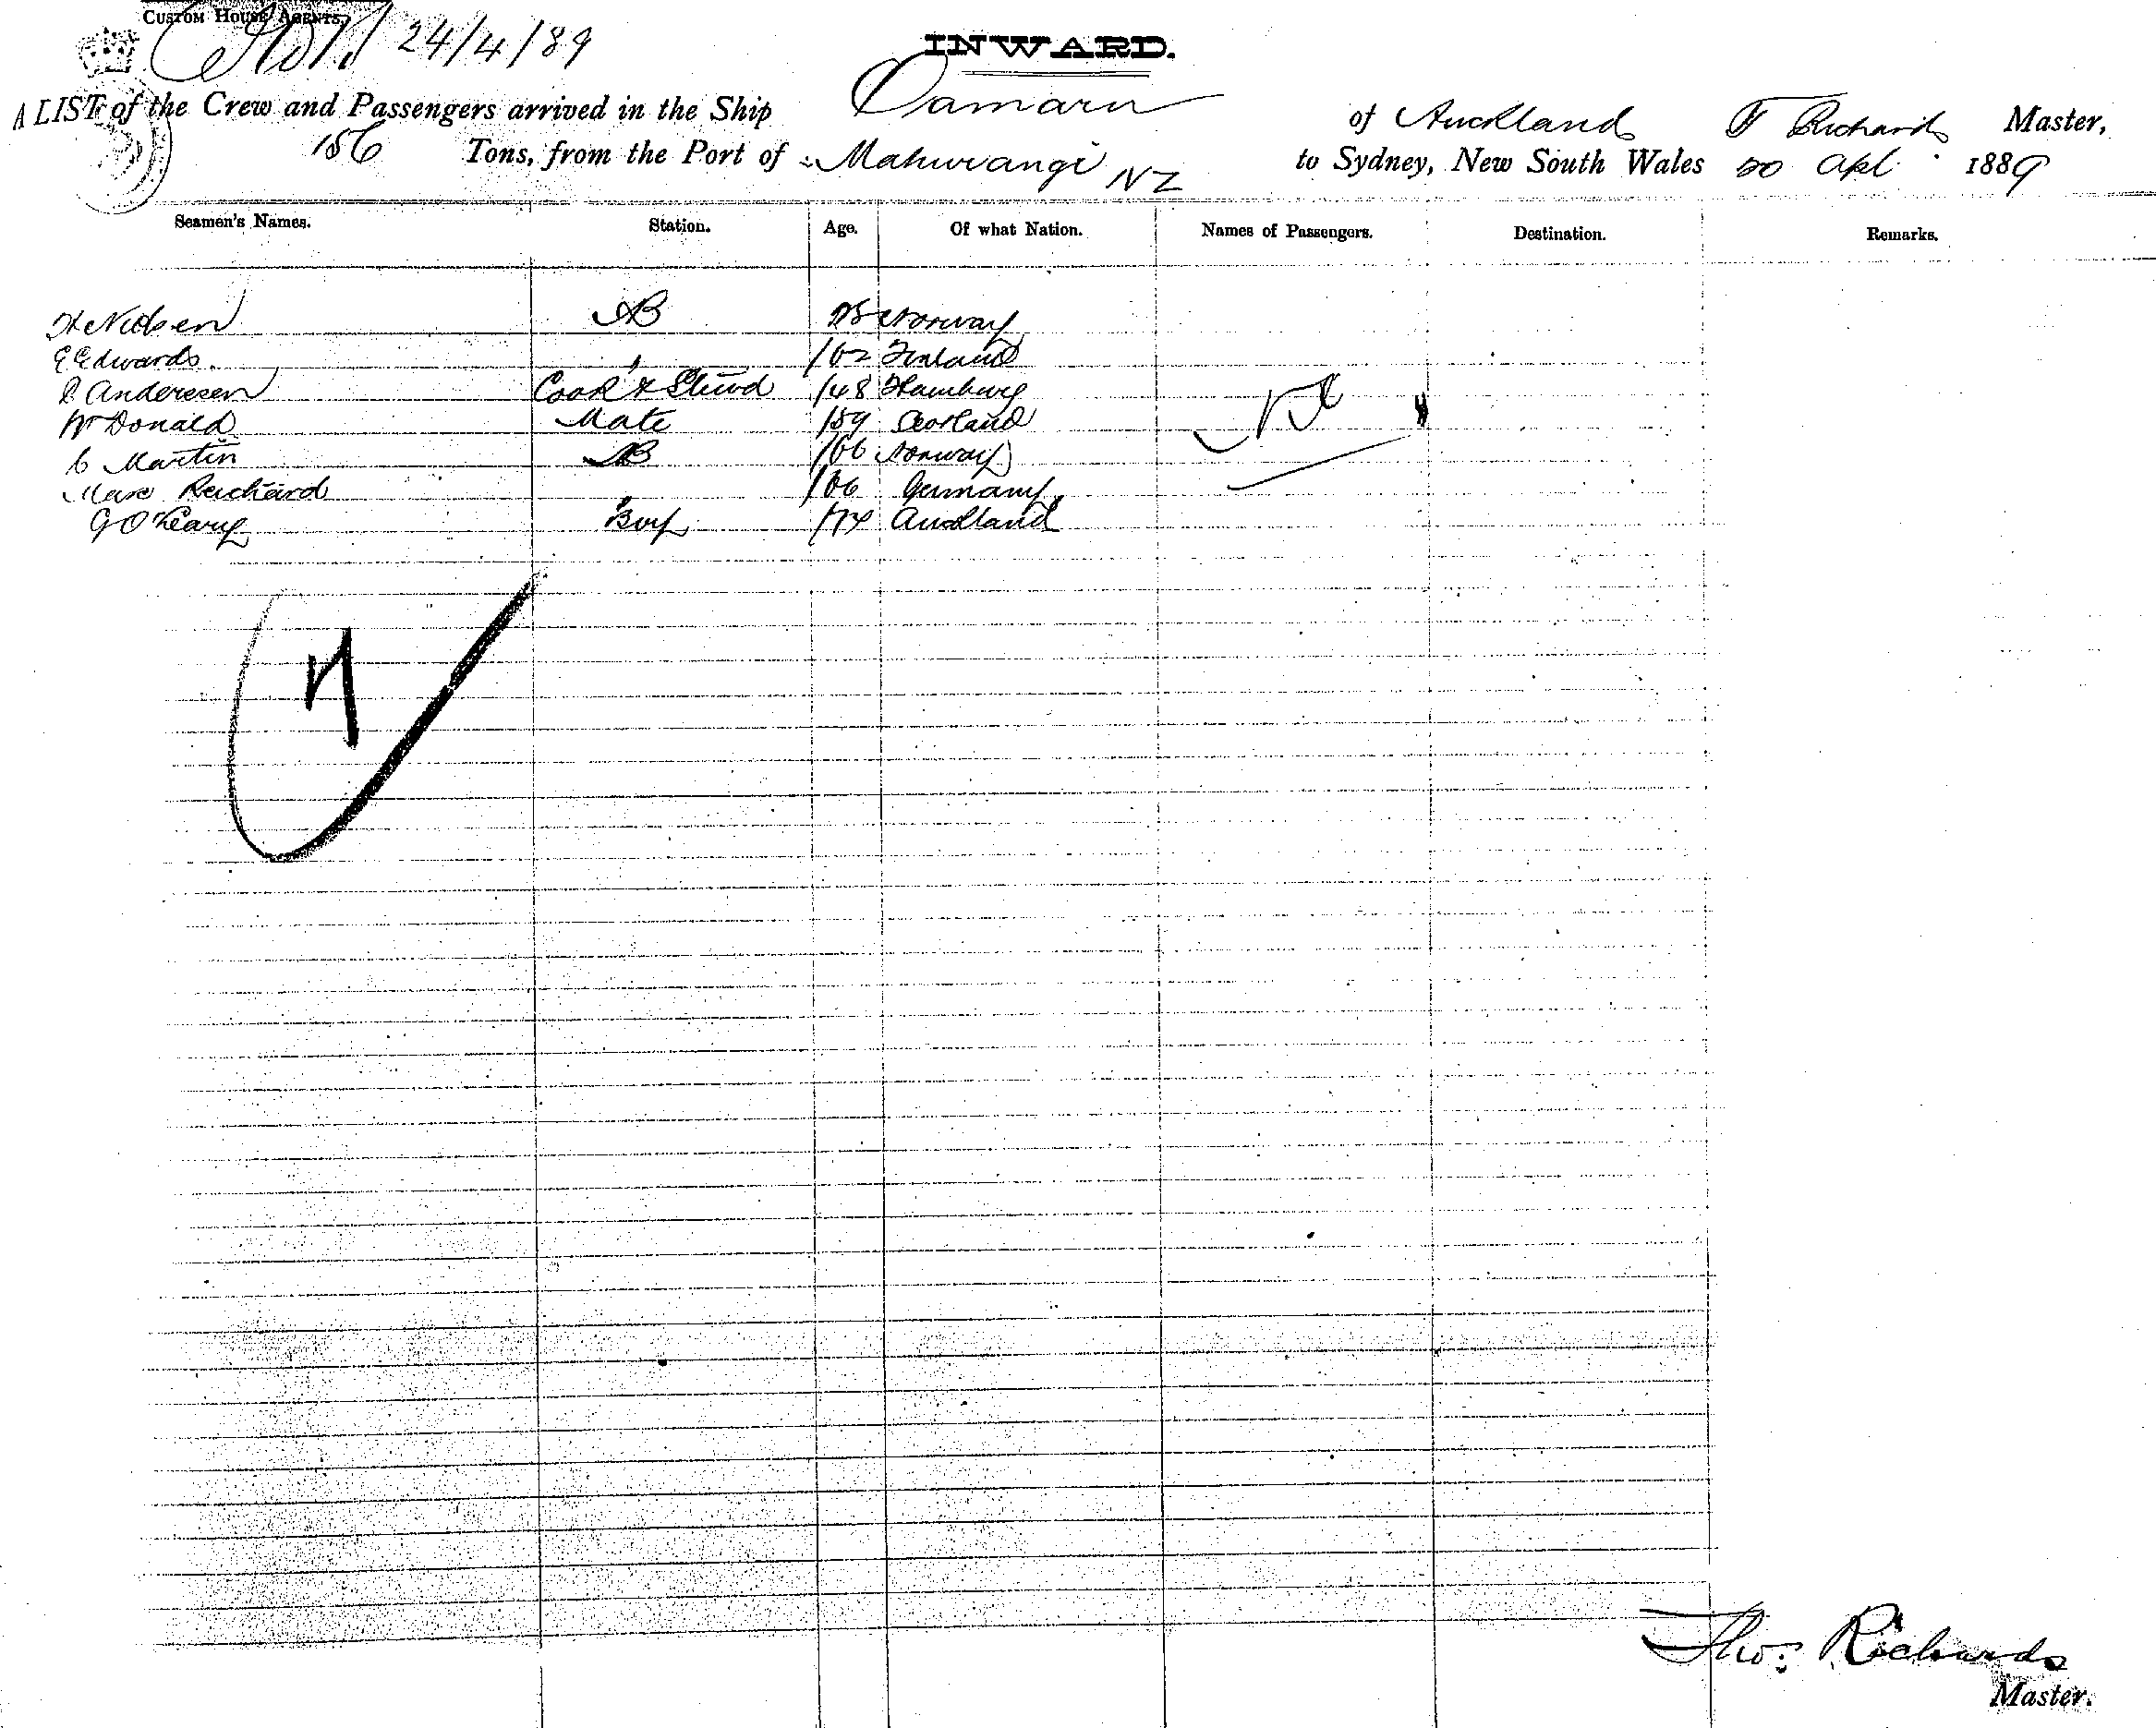 CUSTOM HOUSE AGENTS,
24/4/89
INWARD.
A LIST of the Crew and Passengers arrived in the Ship Oamaru of Auckland T Richards Master,
156 Tons, from the Port of Mahurangi NZ to Sydney, New South Wales 20 Apl 1889
Seamen's Names. Station. Age. Of what Nation. Names of Passengers. Destination. Remarks.
H Nielsen AB Norway
E Edwards " /62 Finland
Andersen Cook & Stewd /48 Hamburg
McDonald Mate /59 Scotland
C Martin AB /66 Norway
Richard /66 Germany
G O'Leary Boy /74 Auckland
Nil
7
Thos: Richards
Master.